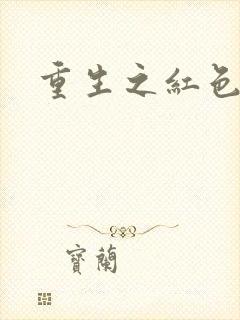 重生之紅色
寶蘭